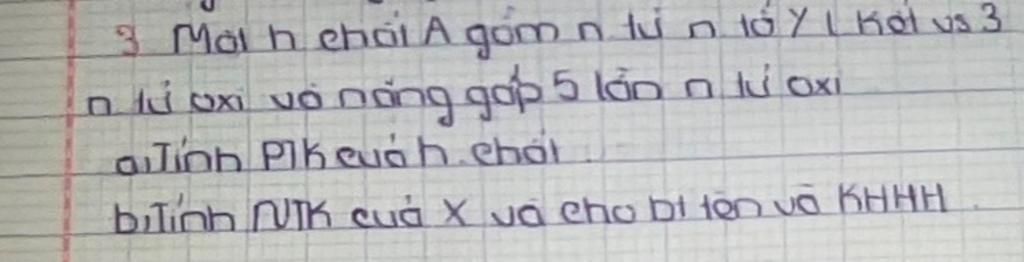 3 Một h chất A gồm n tử n tố Y l kết vs 3
n tử oxi và nặng gấp 5 lần n tử oxi
a, Tính PTK của h.chất
b, Tính NTK của X và cho bt tên và KHHH